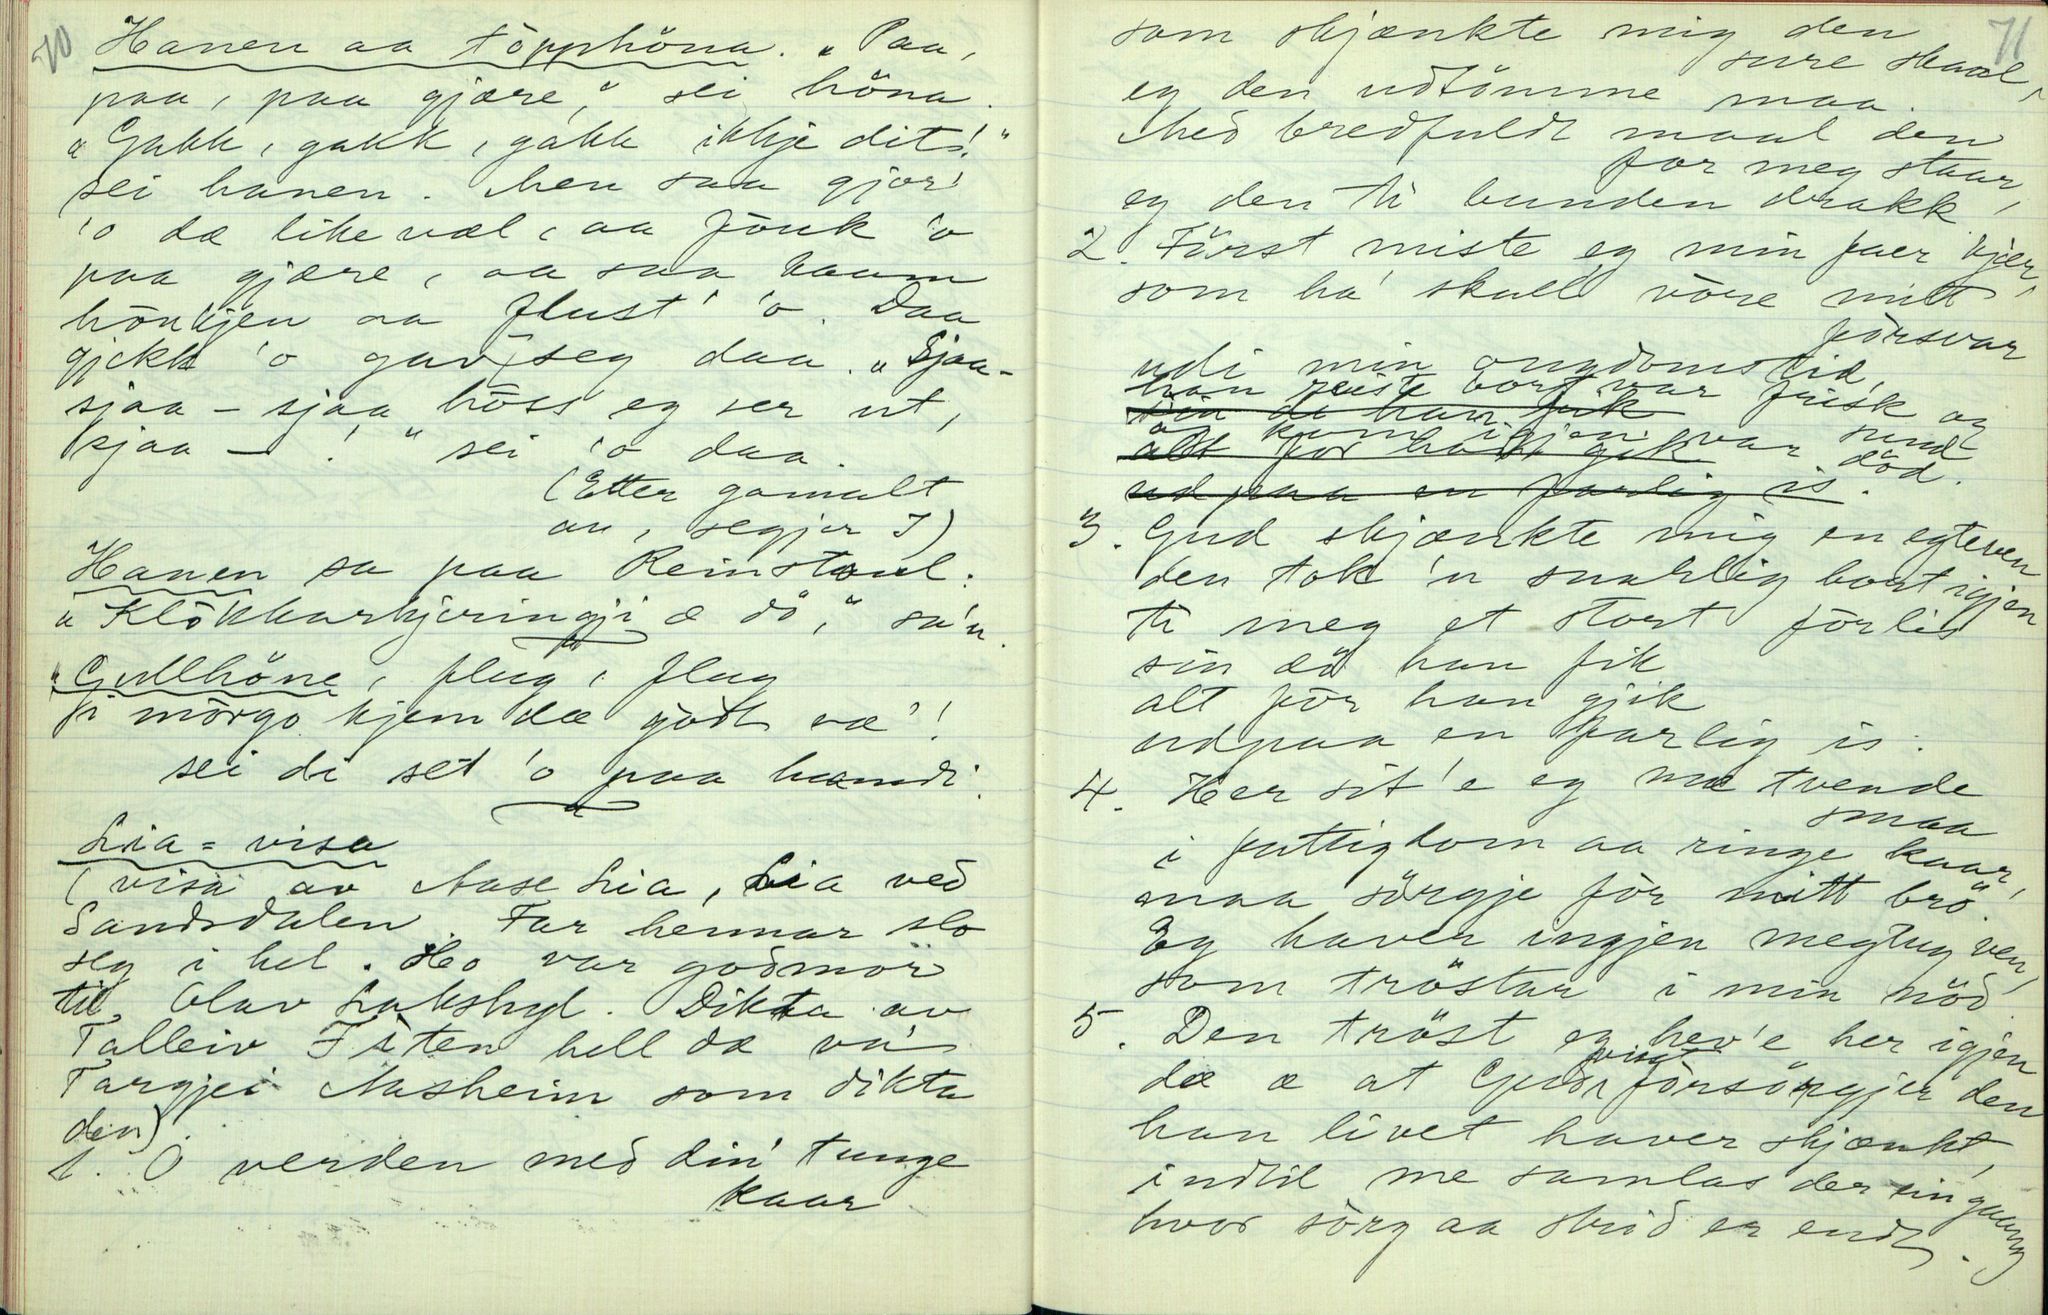 70
Hanen aa töpphöna. "Paa,
paa, paa gjære," sei höna.
"Gakk, gakk, gakk ikkje dit!"
sei hanen. Men saa gjor'
'o dæ likevæl, aa fouk 'o
paa gjære, aa saa kaam
hönkjen aa flust' 'o. Daa
gjekk 'o gav seg daa. "Sjaa-
sjaa - sjaa höss eg ser ut,
sjaa - !" sei 'o daa.
(Etter gamalt
av, segjer I)
Hanen sa paa Reinstaul.
"Klökkarkjeringji æ dö," sa'n.
"Gullhöne, flug, flug
i mörgo kjem dæ godt væ'!
sei di set 'o paa handi.
Lia = visa
(visa av Aase Lia, Lia ved
Sandsdalen. Far hennar slo
seg i hel. Ho var godmor
til Olav Lakskyl. Dikta av
Talleiv Fiten hell dæ va'
Targjei Aasheim som dikta
den)
1. O verden med din' tunge
kaar
71
som skjænkte mig den
sure skaal,
eg den udtömme maa.
Med bredfuldt maal den
for meg staar,
eg den ti bunden drakk,
2. Först miste eg min faer kjær,
som ha' skull' vöre mitt
försvar
udi min ongdomstid,
han reiste bort var frisk og
sin dö han fik
sund
og kom igjen var död.
alt for han gik
ud paa en farlig is.
3. Gud skjænkte mig en egteven
den tok 'n snarlig bort igjen
ti meg et stort förlis
sin dö han fik
alt för han gjik
ud paa en farlig is.
4. Her sit'e eg mæ tvende
smaa
i fattigdom aa ringe kaar,
maa sörgje för mitt brö.
Eg haver ingjen megtug ven,
som tröstar i min nöd.
5. Den tröst eg hev'e her igjen
dæ æ at Gud visst försörgjer den
han livet haver skjænkt,
indtil me samlas der ein gaang
hvor sörg aa strid er endt.